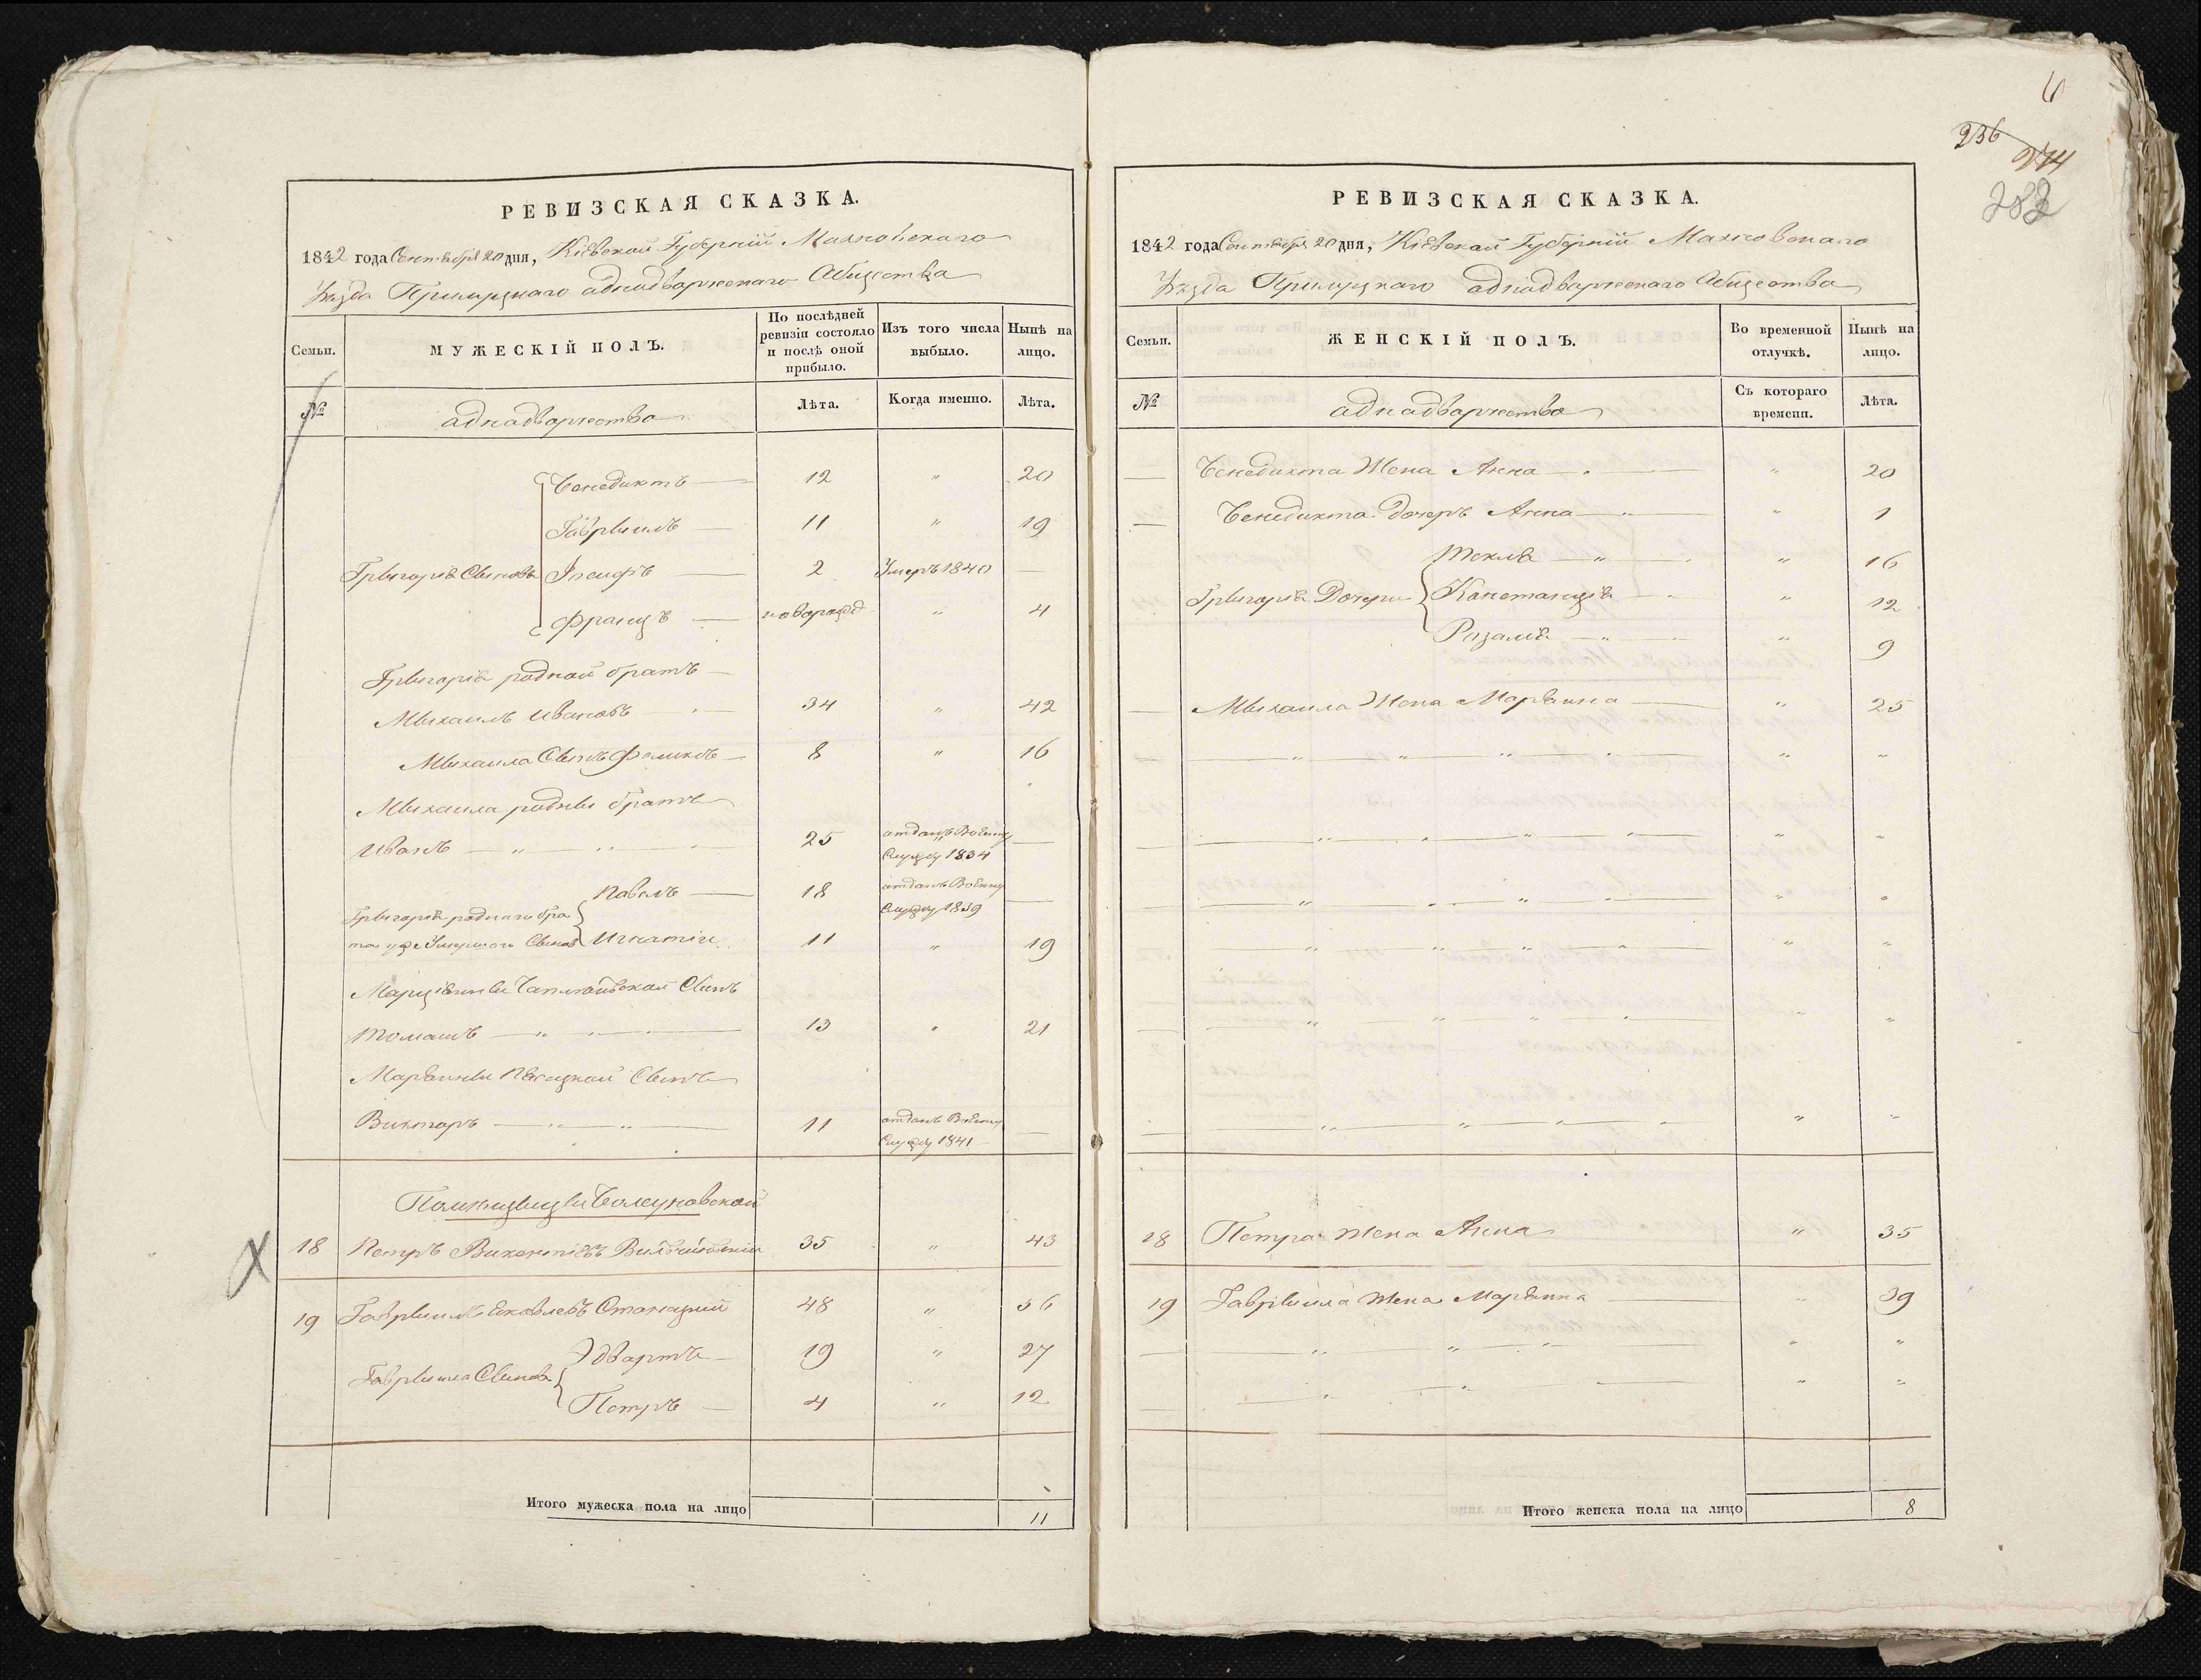 РЕВИЗСКАЯ СКАЗКА.
1842 года Сентября 20 дня, Кіевской Губерніи Махновскаго
Уѣзда Прилуцкаго аднадворческаго Общества
Семьи.
МУЖЕСКІЙ ПОЛЪ.
По послѣдней ревизіи состояло и послѣ оной прибыло.
Изъ того числа выбыло.
Нынѣ на лицо.
№
аднадворчество
Лѣта.
Когда именно.
Лѣта.
Бенедиктъ — 12 " 20
Гаврыилъ — 11 " 19
Грыгорія Сынова Іосифъ — 2 Умеръ 1840 —
Францъ — наворожд " 4
Грыгорія радной братъ —
Мыхаилъ Ивановъ — 34 " 42
Мыхаила Сынъ Феликсъ — 8 " 16
Мыхаила радны братъ
Иванъ — " — 25 отданъ Воену Службу 1834 —
Павелъ — 18 отданъ Воену Службу 1839 —
Грыгорія раднаго бра
та уже Умершаго Сынов Игнатій 11 " 19
Марцыянны Сынъ
Томашъ — " — 13 " 21
Маріянны Сынъ
Викторъ — " — 11 отданъ Воену Службу 1841 —
18 Петръ Викентіевъ 35 " 43
19 Гаврыилъ Яковлевъ Станацкий 48 " 56
Гаврыила Сынова Эдвартъ — 19 " 27
Петръ — 4 " 12
Итого мужеска пола на лицо 11
6
236
274
282
РЕВИЗСКАЯ СКАЗКА.
1842 года Сентября 20 дня, Кіевской Губерніи Махновскаго
Уѣзда Прилуцкаго аднадворческаго Общества
Семьи.
ЖЕНСКІЙ ПОЛЪ.
Во временной отлучкѣ.
Нынѣ на лицо.
№
аднадворчество
Съ котораго времени.
Лѣта.
— Бенедикта Жена Анна — " 20
— Бенедикта дочеръ Анна — " 1
Текля — " 16
Грыгорія Дочери Канстанція — " 12
Разалія — " 9
— Мыхаила Жена Маріянна — " 25
18 Петра жена Анна " 35
19 Гаврыила жена Маріянна — " 39
Итого женска пола на лицо 8